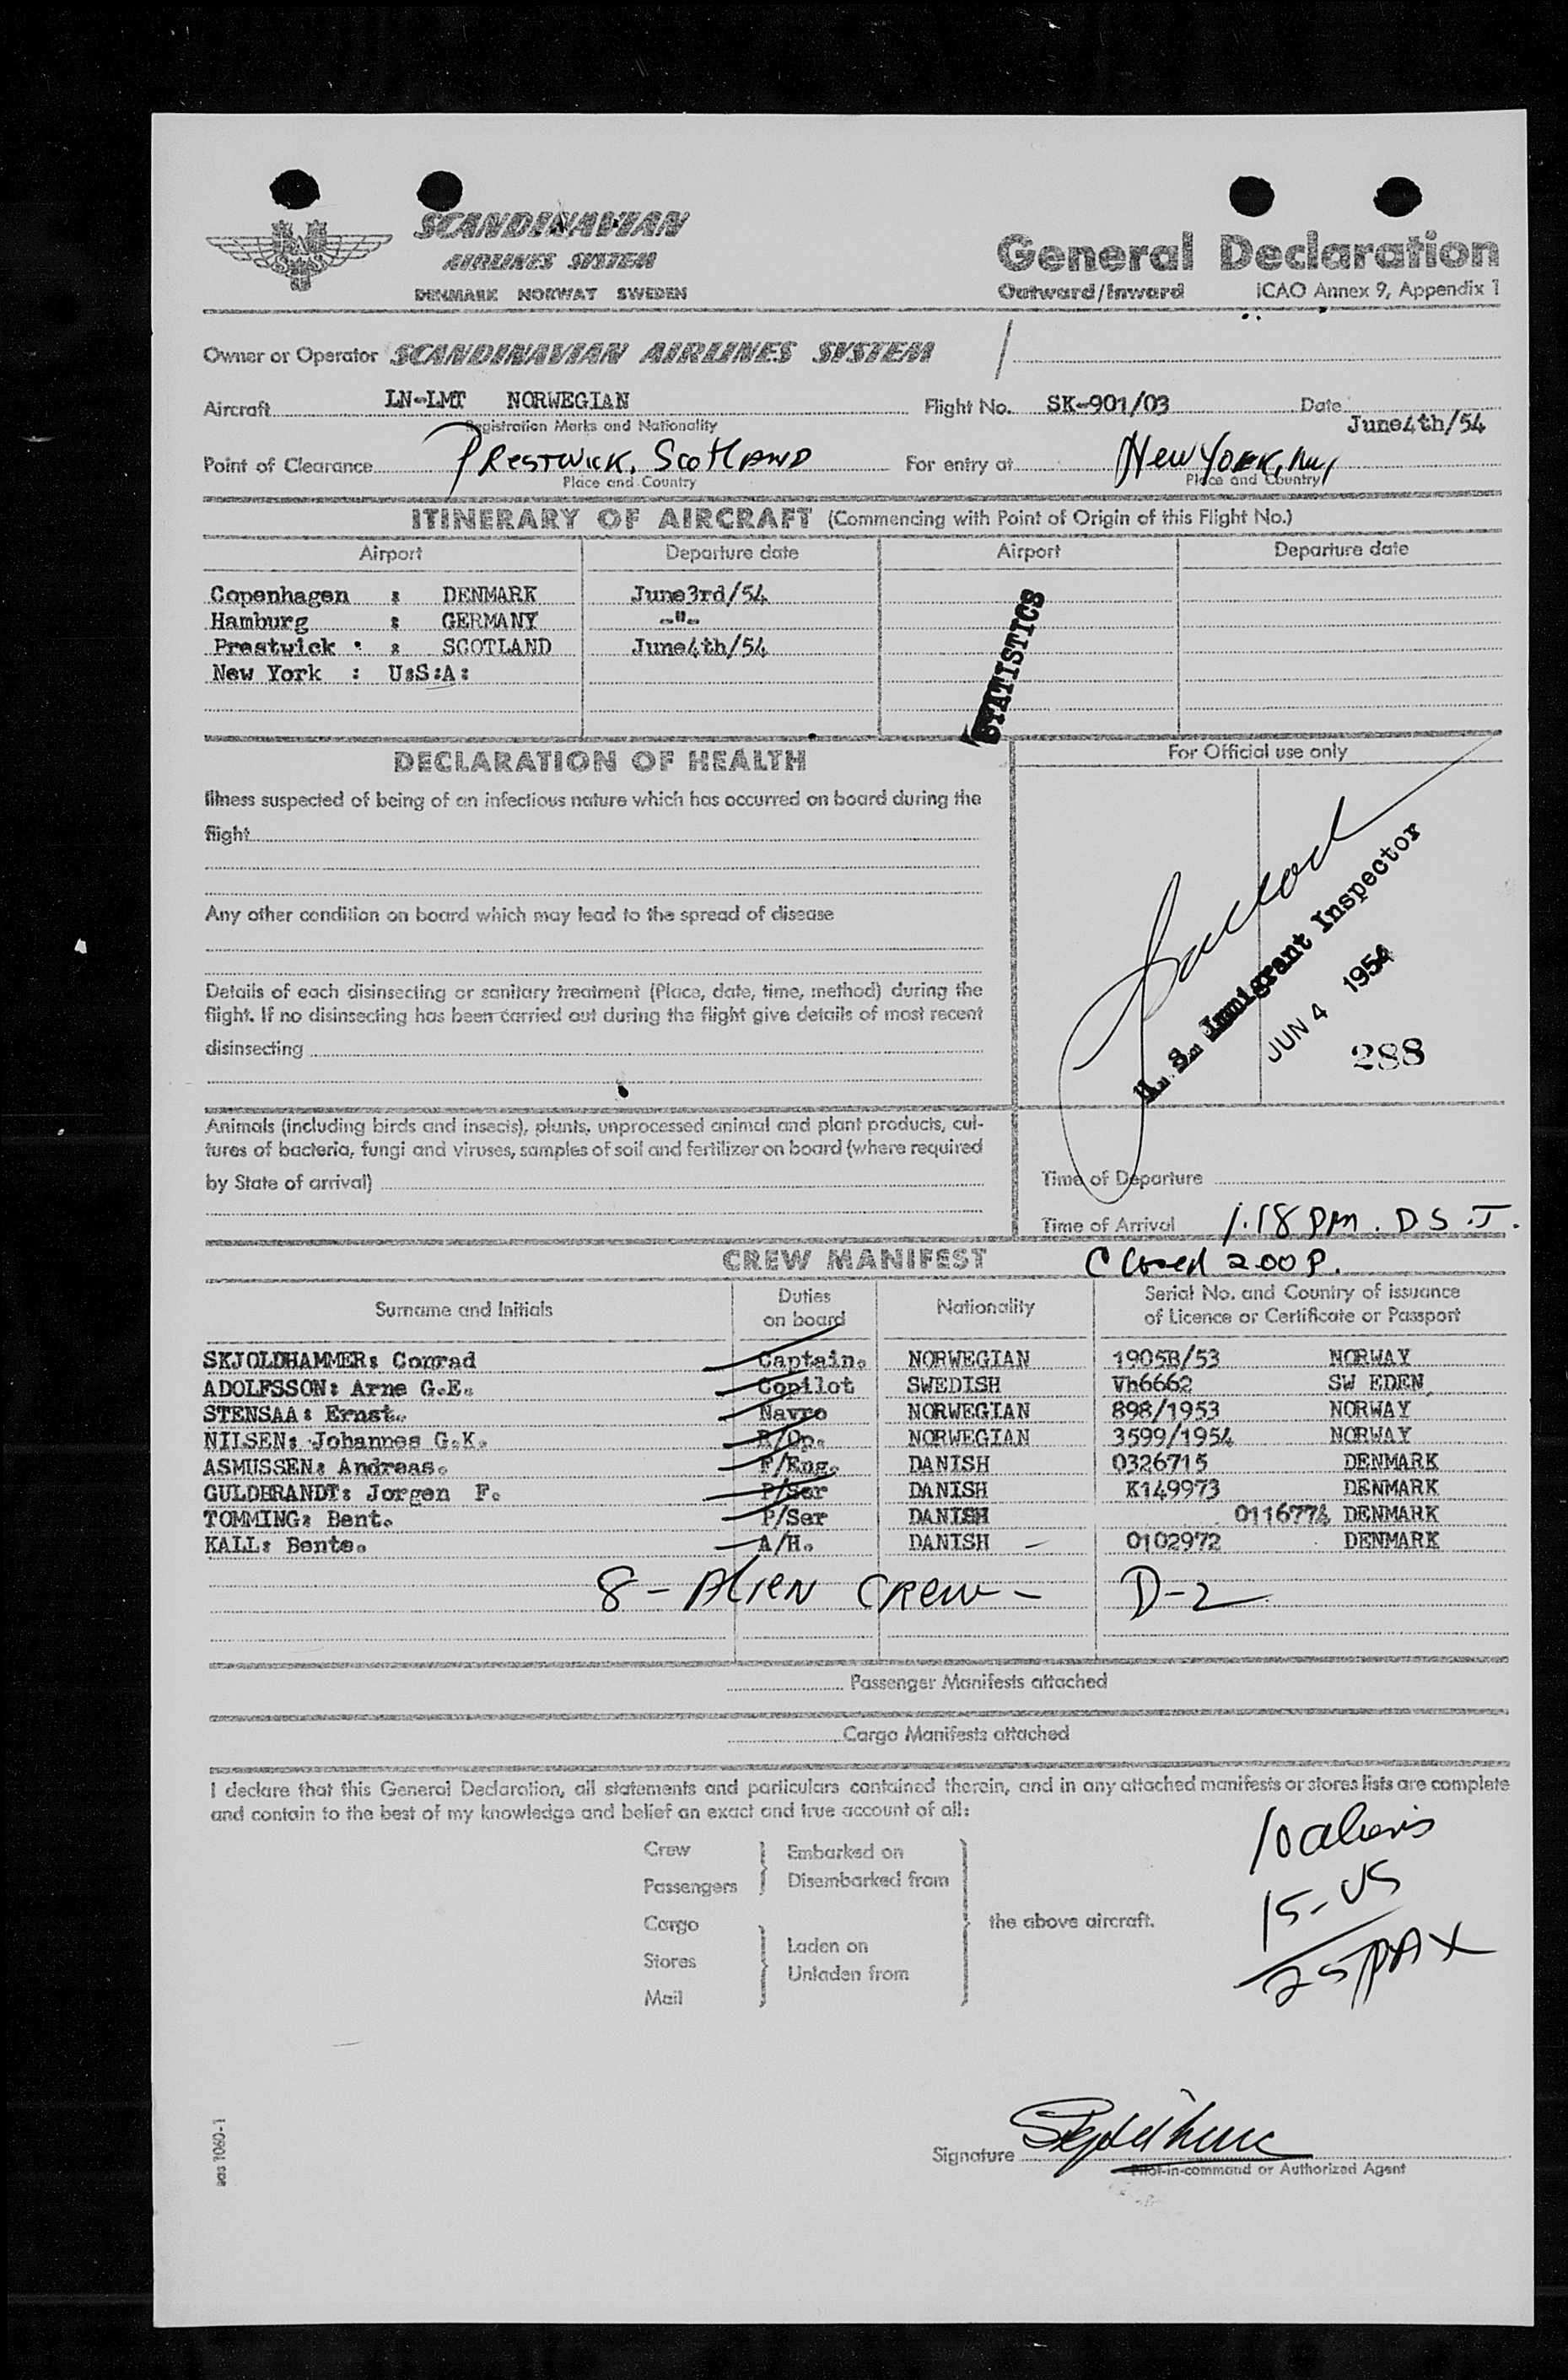 SCANDINAVIAN
AIRLINES SYSTEM
DENMARK NORWAY SWEDEN
General Declaration
Outward/Inward ICAO Annex 9, Appendix 1
Owner or Operator SCANDINAVIAN AIRLINES SYSTEM
Aircraft LN-LMT NORWEGIAN Flight No. SK-901/03 Date June4th/54
Registration Marks and Nationality
Point of Clearance PRESTWICK, SCOTLAND For entry at New YORK, N.Y.
Place and Country Place and Country
ITINERARY OF AIRCRAFT (Commencing with Point of Origin of this Flight No.)
Airport Departure date Airport Departure date
Copenhagen : DENMARK June3rd/54
Hamburg : GERMANY -"-
Prestwick : SCOTLAND June4th/54
New York : U:S:A:
STATISTICS
DECLARATION OF HEALTH
Illness suspected of being of an infectious nature which has occurred on board during the
flight
Any other condition on board which may lead to the spread of disease
Details of each disinsecting or sanitary treatment (Place, date, time, method) during the
flight. If no disinsecting has been carried out during the flight give details of most recent
disinsecting
Animals (including birds and insects), plants, unprocessed animal and plant products, cul-
tures of bacteria, fungi and viruses, samples of soil and fertilizer on board (where required
by State of arrival)
For Official use only
U. S. Immigrant Inspector
JUN 4 1954
288
Time of Departure
Time of Arrival 1.18 PM. D S.T.
Closed 200 P.
CREW MANIFEST
Surname and Initials Duties on board Nationality Serial No. and Country of issuance of Licence or Certificate or Passport
SKJOLDHAMMER: Conrad Captain. NORWEGIAN 1905B/53 NORWAY
ADOLFSSON: Arne G.E. Copilot SWEDISH Vh6662 SW EDEN
STENSAA: Ernst. Navro NORWEGIAN 898/1953 NORWAY
NILSEN: Johannes G.K. R/Op. NORWEGIAN 3599/1954 NORWAY
ASMUSSEN: Andreas. F/Eng. DANISH 0326715 DENMARK
GULDBRANDT: Jorgen F. P/Ser DANISH K149973 DENMARK
TOMMING: Bent. P/Ser DANISH 0116774 DENMARK
KALL: Bente. A/H. DANISH 0102972 DENMARK
8 - ALIEN CREW - D-2
Passenger Manifests attached
Cargo Manifests attached
I declare that this General Declaration, all statements and particulars contained therein, and in any attached manifests or stores lists are complete
and contain to the best of my knowledge and belief an exact and true account of all:
Crew
Passengers
Embarked on
Disembarked from
Cargo
Stores
Mail
Laden on
Unladen from
the above aircraft.
10 aliens
15-US
25 PAX
Signature
Pilot-in-command or Authorized Agent
sas 1060-1